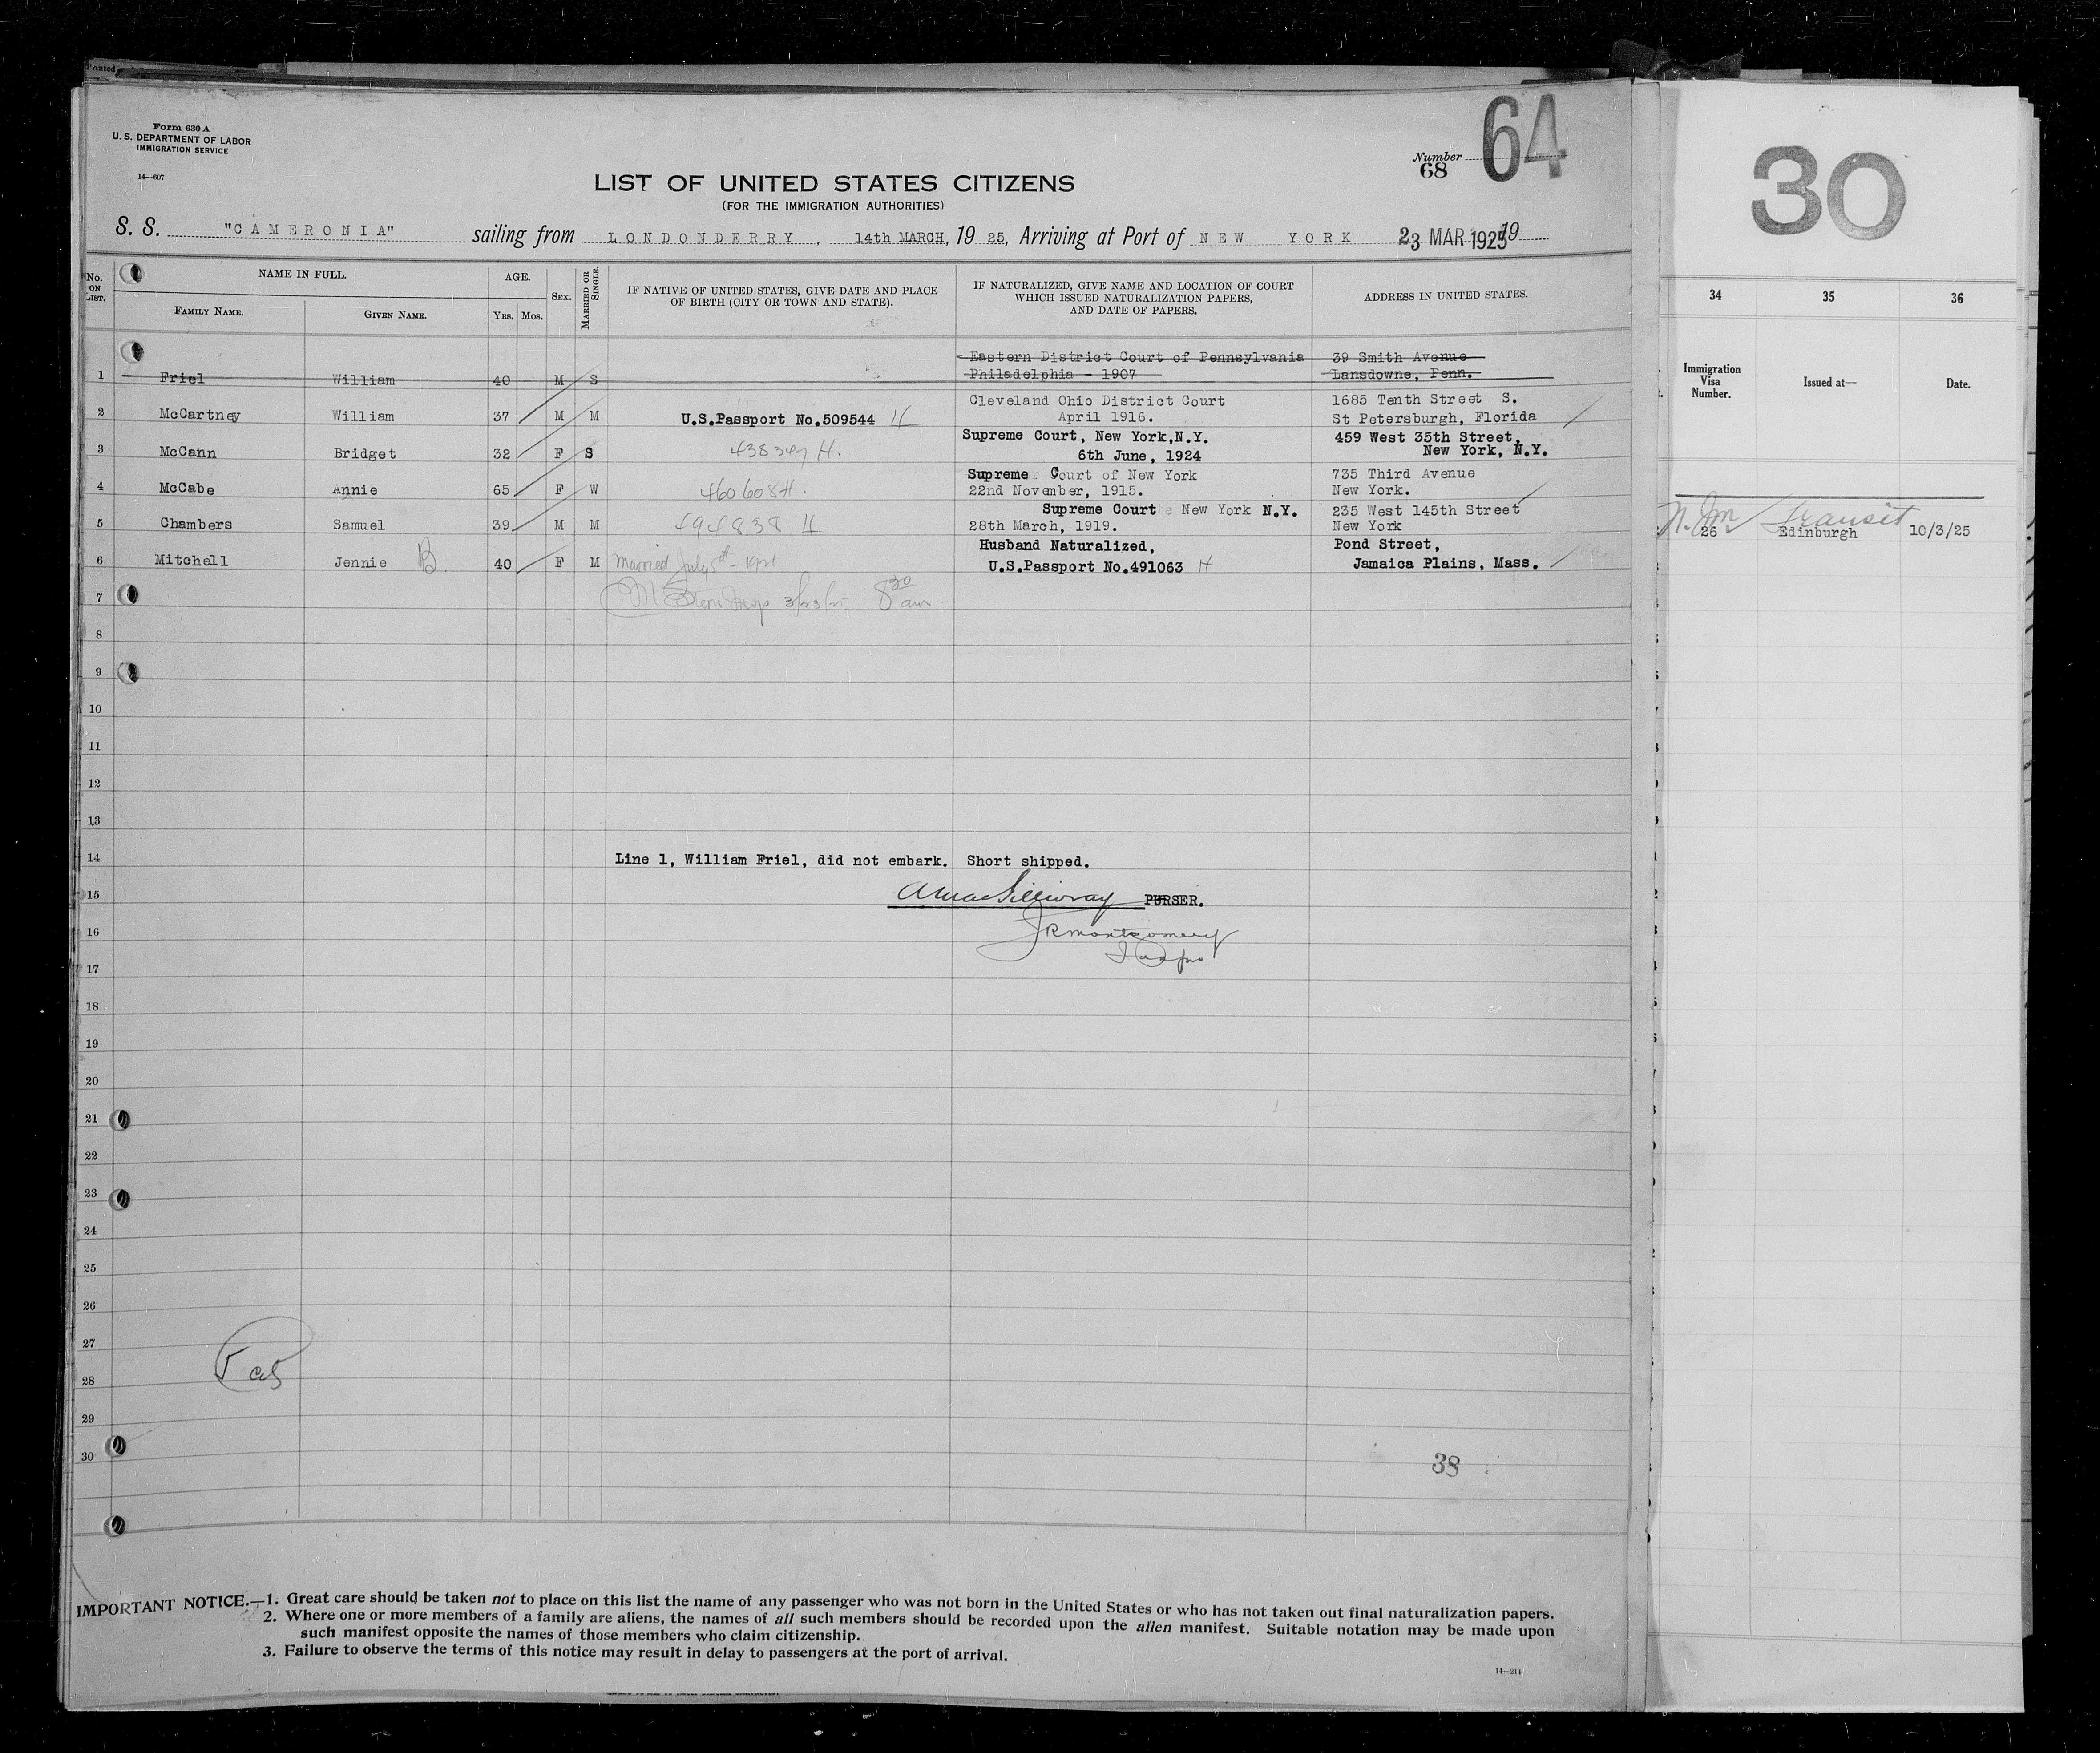 Printed
Form 630 A
U. S. DEPARTMENT OF LABOR
IMMIGRATION SERVICE
14—607
Number
68
64
LIST OF UNITED STATES CITIZENS
(FOR THE IMMIGRATION AUTHORITIES)
S. S. "CAMERONIA" sailing from LONDONDERRY, 14th MARCH, 19 25, Arriving at Port of NEW YORK 23 MAR 1925 19
No. ON LIST.
NAME IN FULL.
FAMILY NAME.
GIVEN NAME.
AGE.
YRS. MOS.
SEX.
MARRIED OR SINGLE.
IF NATIVE OF UNITED STATES, GIVE DATE AND PLACE
OF BIRTH (CITY OR TOWN AND STATE).
IF NATURALIZED, GIVE NAME AND LOCATION OF COURT
WHICH ISSUED NATURALIZATION PAPERS,
AND DATE OF PAPERS.
ADDRESS IN UNITED STATES.
Eastern District Court of Pennsylvania 39 Smith Avenue
1 Friel William 40 M S Philadelphia - 1907 Lansdowne, Penn.
Cleveland Ohio District Court 1685 Tenth Street S.
2 McCartney William 37 M M U.S.Passport No.509544 H April 1916. St Petersburgh, Florida
Supreme Court, New York,N.Y. 459 West 35th Street,
3 McCann Bridget 32 F S H. 6th June, 1924 New York, N.Y.
Supreme Court of New York 735 Third Avenue
4 McCabe Annie 65 F W 460608 H. 22nd November, 1915. New York.
Supreme Court New York N.Y. 235 West 145th Street
5 Chambers Samuel 39 M M 494838 H 28th March, 1919. New York
Husband Naturalized, Pond Street,
6 Mitchell Jennie B. 40 F M Married July 5th - 1921 U.S.Passport No.491063 H Jamaica Plains, Mass.
7 3/23/25 8 30 am
8
9
10
11
12
13
14 Line 1, William Friel, did not embark. Short shipped.
15 PURSER.
16 JRMontgomery
17
18
19
20
21
22
23
24
25
26
27
28
29
30
38
IMPORTANT NOTICE.—1. Great care should be taken not to place on this list the name of any passenger who was not born in the United States or who has not taken out final naturalization papers.
2. Where one or more members of a family are aliens, the names of all such members should be recorded upon the alien manifest. Suitable notation may be made upon
such manifest opposite the names of those members who claim citizenship.
3. Failure to observe the terms of this notice may result in delay to passengers at the port of arrival.
14—214
30
34 35 36
Immigration
Visa
Number.
Issued at—
Date.
Transit
26 Edinburgh 10/3/25